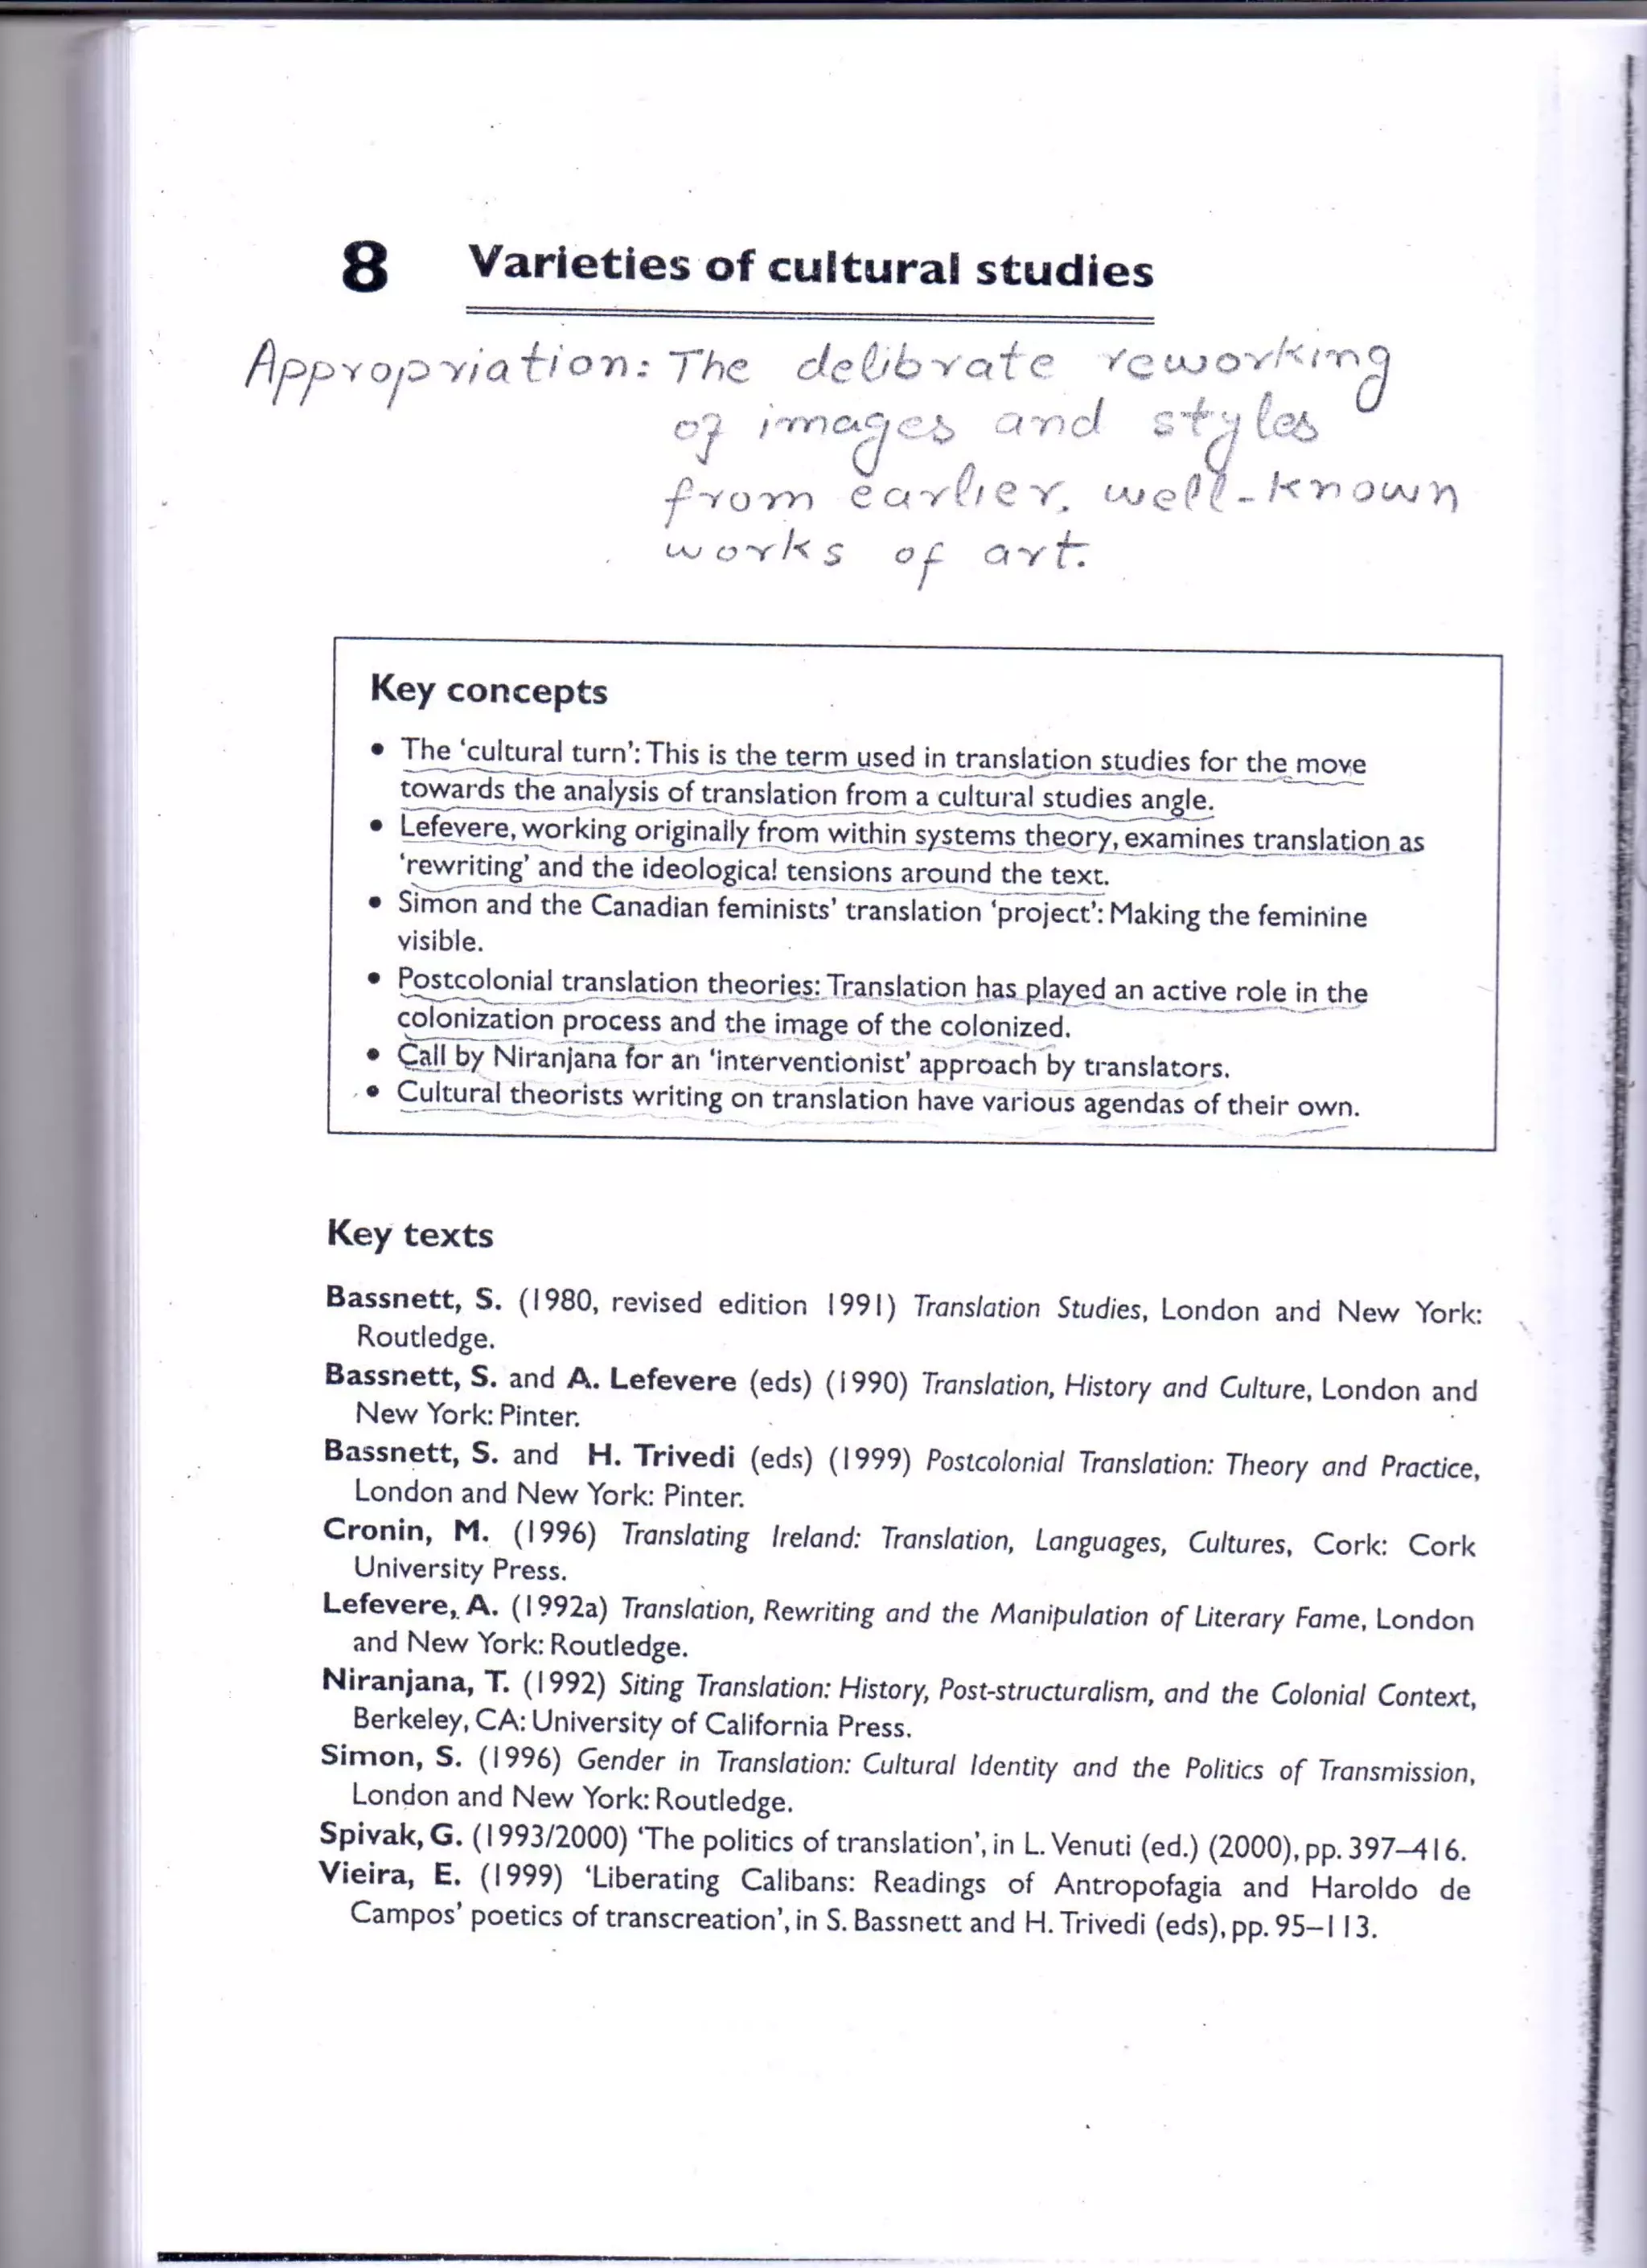 8 Varieties of cultural studies
Appropriation: The delibrate reworking
of images and styles
from earlier, well-known
works of art.
Key concepts
• The ‘cultural turn’: This is the term used in translation studies for the move
towards the analysis of translation from a cultural studies angle.
• Lefevere, working originally from within systems theory, examines translation as
‘rewriting’ and the ideological tensions around the text.
• Simon and the Canadian feminists’ translation ‘project’: Making the feminine
visible.
• Postcolonial translation theories: Translation has played an active role in the
colonization process and the image of the colonized.
• Call by Niranjana for an ‘interventionist’ approach by translators.
• Cultural theorists writing on translation have various agendas of their own.
Key texts
Bassnett, S. (1980, revised edition 1991) Translation Studies, London and New York:
Routledge.
Bassnett, S. and A. Lefevere (eds) (1990) Translation, History and Culture, London and
New York: Pinter.
Bassnett, S. and H. Trivedi (eds) (1999) Postcolonial Translation: Theory and Practice,
London and New York: Pinter.
Cronin, M. (1996) Translating Ireland: Translation, Languages, Cultures, Cork: Cork
University Press.
Lefevere, A. (1992a) Translation, Rewriting and the Manipulation of Literary Fame, London
and New York: Routledge.
Niranjana, T. (1992) Siting Translation: History, Post-structuralism, and the Colonial Context,
Berkeley, CA: University of California Press.
Simon, S. (1996) Gender in Translation: Cultural Identity and the Politics of Transmission,
London and New York: Routledge.
Spivak, G. (1993/2000) ‘The politics of translation’, in L. Venuti (ed.) (2000), pp. 397–416.
Vieira, E. (1999) ‘Liberating Calibans: Readings of Antropofagia and Haroldo de
Campos’ poetics of transcreation’, in S. Bassnett and H. Trivedi (eds), pp. 95–113.